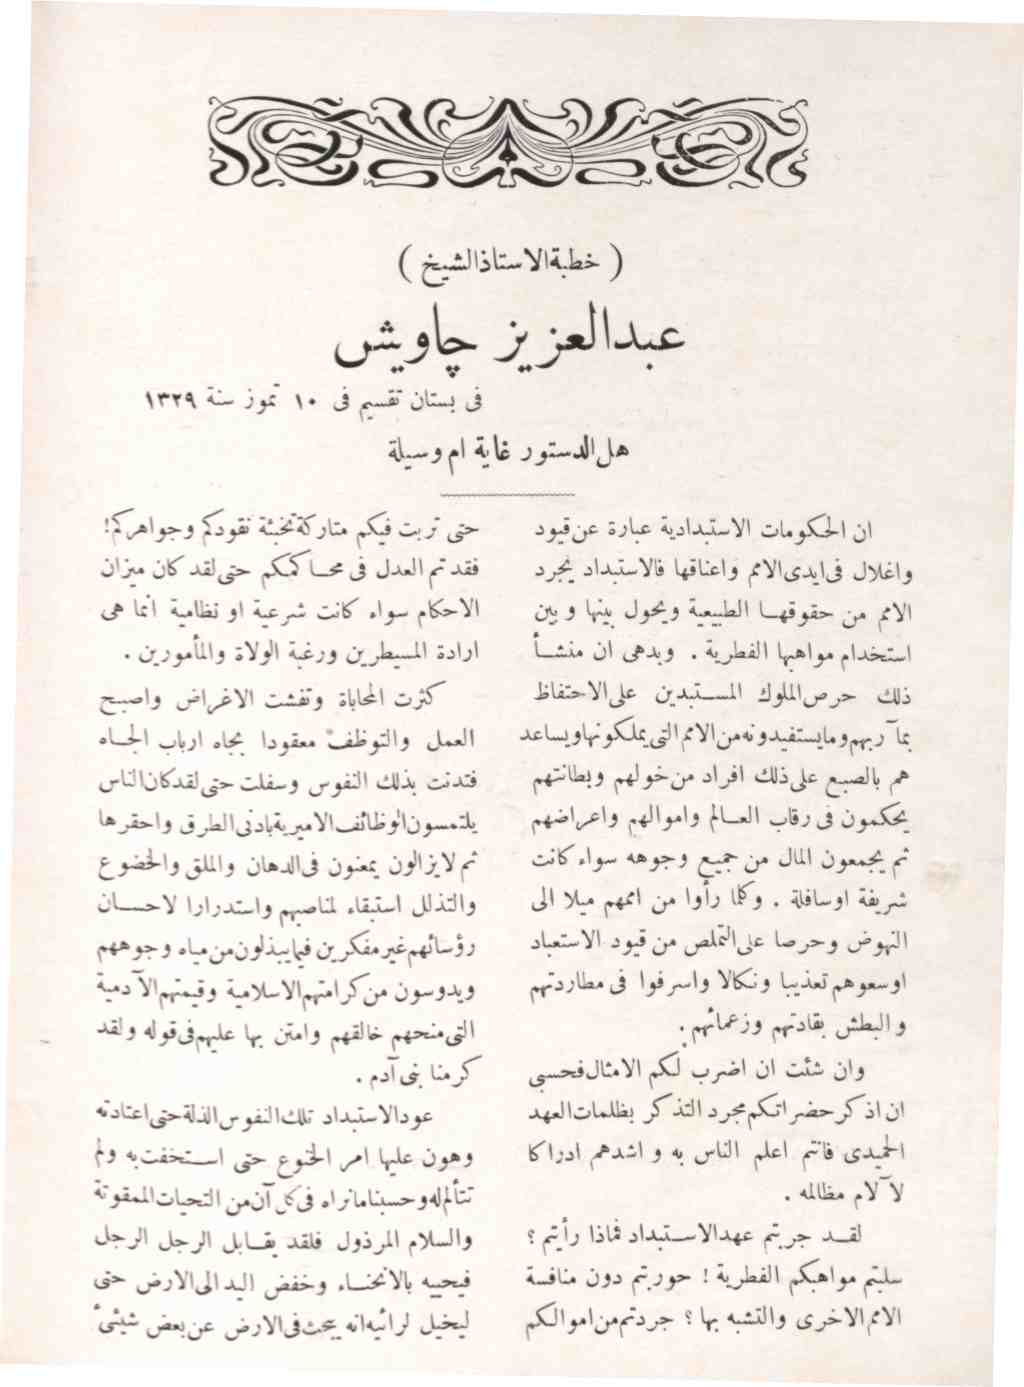 ( خطبة الاستاذ الشيخ )
عبدالعزيز چاويش
فى بستان تقسيم فى ١٠ تموز سنة ١٣٢٩
هل الدستور غاية ام وسيلة
ان الحكومات الاستبدادية عبارة عن قيود
واغلال فى ايدى الامم واعناقها فالاستبداد يجرد
الامم من حقوقهـا الطبيعية ويحول بينها وبين
استخدام مواهبها الفطرية . وبدهى ان منشـأ
ذلك حرص الملوك المسـتبدين على الاحتفاظ
بمآربهم وما يستفيدونه من الامم التى يملكونها ويساعد
هم بالصبع على ذلك افراد من خولهم وبطانتهم
يحكمون فى رقاب العـالم واموالهم واعراضهم
ثم يجمعون المال من جميع وجوهه سواء كانت
شريفة اوسافلة . وكلما رأوا من اممهم ميلا الى
النهوض وحرصا على التملص من قيود الاستعباد
اوسعوهم تعذيبا ونكالا واسرفوا فى مطاردتهم
والبطش بقادتهم وزعمائهم .
وان شئت ان اضرب لكم الامثال فحسبى
ان اذكر حضراتكم مجرد التذكر بظلمات العهد
الحميدى فانتم اعلم الناس به واشدهم ادراكا
لآلام مظالمه .
لقـد جربتم عهد الاسـتبداد فماذا رأيتم ؟
سلبتم مواهبكم الفطرية ! حوربتم دون منافسة
الامم الاخرى والتشبه بها ؟ جردتم من اموالكم
حتى تربت فيكم متاركة تخبئة نقودكم وجواهركم!
فقد تم العدل فى محـاكمكم حتى لقد كان ميزان
الاحكام سواء كانت شرعية او نظامية انما هى
ارادة المسيطرين ورغبة الولاة والمأمورين .
كثرت المحاباة وتفشت الاغراض واصبـح
العمل والتوظف معقودا بجاه ارباب الجـاه
فتدنت بذلك النفوس وسفلت حتى لقد كان الناس
يلتمسون الوظائف الاميرية بادنى الطرق واحقرها
ثم لايزالون يمعنون فى الدهان والملق والخضوع
والتذلل استبقاء لمناصبهم واستدرارا لاحسـان
رؤسائهم غير مفكرين فيما يبذلون من مياه وجوههم
ويدوسون من كرامتهم الاسلامية وقيمتهم الآدمية
التى منحهم خالقهم وامتن بها عليهم فى قوله ولقد
كرمنا بنى آدم .
عود الاستبداد تلك النفوس الذلة حتى اعتادته
وهون عليها امر الخنوع حتى اسـتخفت به ولم
تتألم له وحسبنا مانراه فى كل آن من التحيات الممقوتة
والسلام المرذول فلقد يقـابل الرجل الرجل
فيحييه بالانحنـاء وخفض اليد الى الارض حتى
ليخيل لرائيه انه يبحث فى الارض عن بعض شيئ